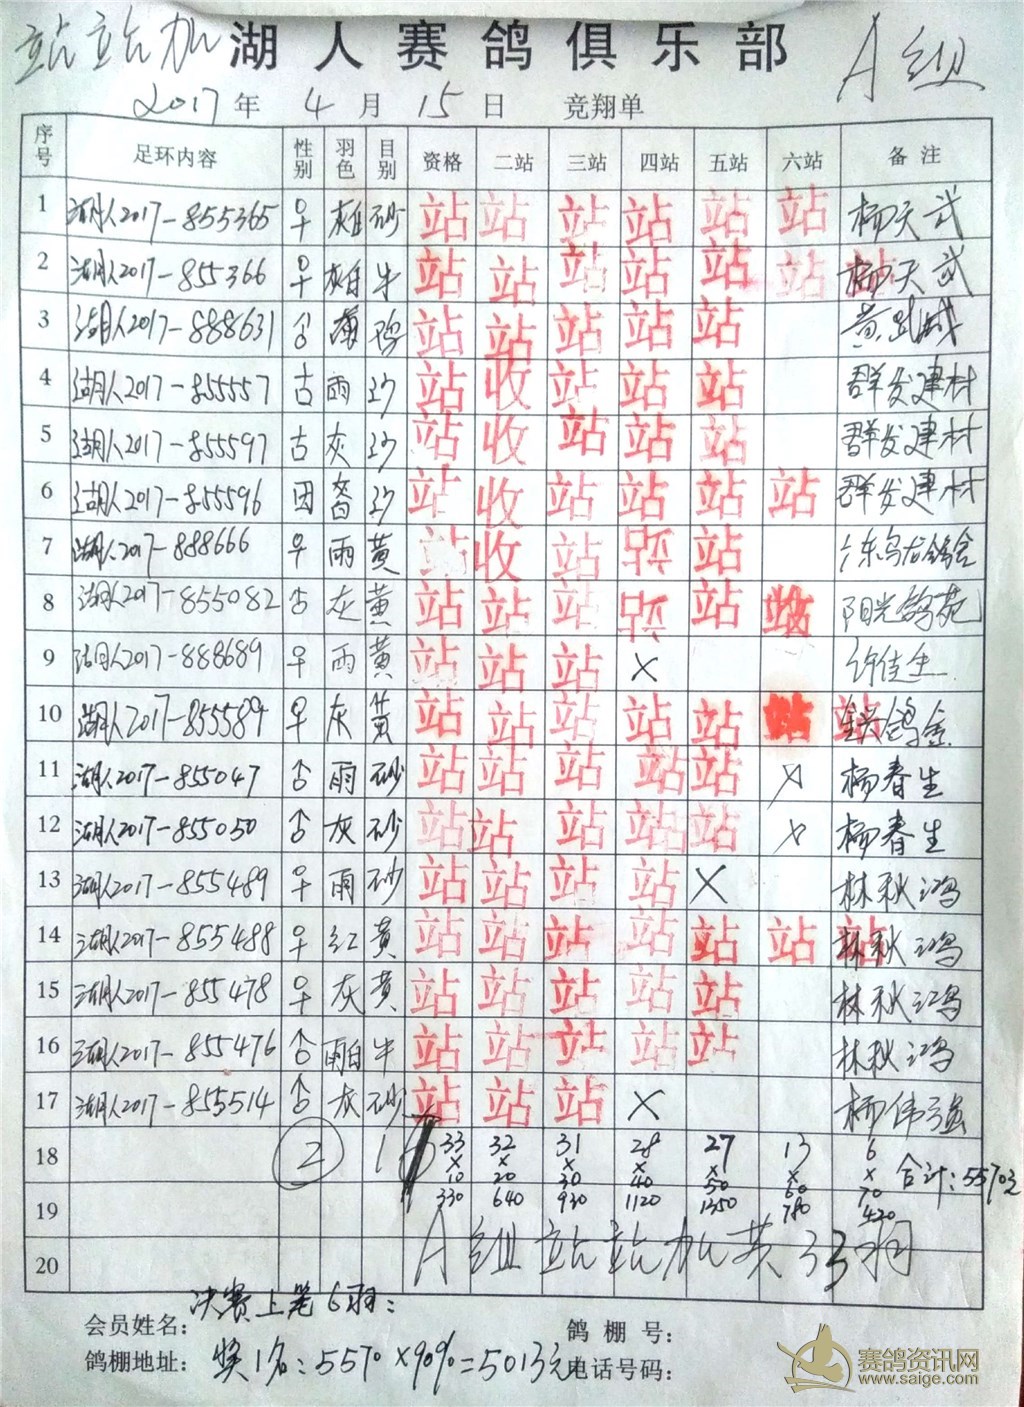 站站加 湖人赛鸽俱乐部 A组
2017年 4月 15日 竞翔单
序号 足环内容 性别 羽色 目别 资格 二站 三站 四站 五站 六站 备注
1 湖人2017-855365 ♀ 雄 砂 站 站 站 站 站 站 杨天武
2 湖人2017-855366 ♀ 雄 牛 站 站 站 站 站 站 站 杨天武
3 湖人2017-888631 站 站 站 站 站
4 湖人2017-855557 雨 沙 站 收 站 站 站 群发建材
5 湖人2017-855597 灰 沙 站 收 站 站 站 群发建材
6 湖人2017-855596 沙 站 收 站 站 站 站 群发建材
7 湖人2017-888666 ♀ 雨 黄 站 收 站 环 站
8 湖人2017-855082 灰 黄 站 站 站 环 站 收 阳光鸽苑
9 湖人2017-888689 ♀ 雨 黄 站 站 站 × 许佳生
10 湖人2017-855589 ♀ 灰 黄 站 站 站 站 站 站 站
11 湖人2017-855047 ♂ 雨 砂 站 站 站 站 站 × 杨春生
12 湖人2017-855050 ♂ 灰 砂 站 站 站 站 站 × 杨春生
13 湖人2017-855489 ♀ 雨 砂 站 站 站 站 × 林秋鸿
14 湖人2017-855488 ♀ 红 黄 站 站 站 站 站 站 站 林秋鸿
15 湖人2017-855478 ♀ 灰 黄 站 站 站 站 站 林秋鸿
16 湖人2017-855476 ♂ 牛 站 站 站 站 站 林秋鸿
17 湖人2017-855514 ♂ 灰 砂 站 站 站 × 杨伟强
18 2 33 32 31 28 27 13 6
× × × × × × × 合计:5570元
10 20 30 40 50 60 70
19 330 640 930 1120 1350 780 420
20 A组站站加共33羽
决赛上笔6羽:
会员姓名: 鸽棚号:
鸽棚地址: 奖1名:5570×90%=5013元 电话号码:
赛鸽资讯网
www.saige.com